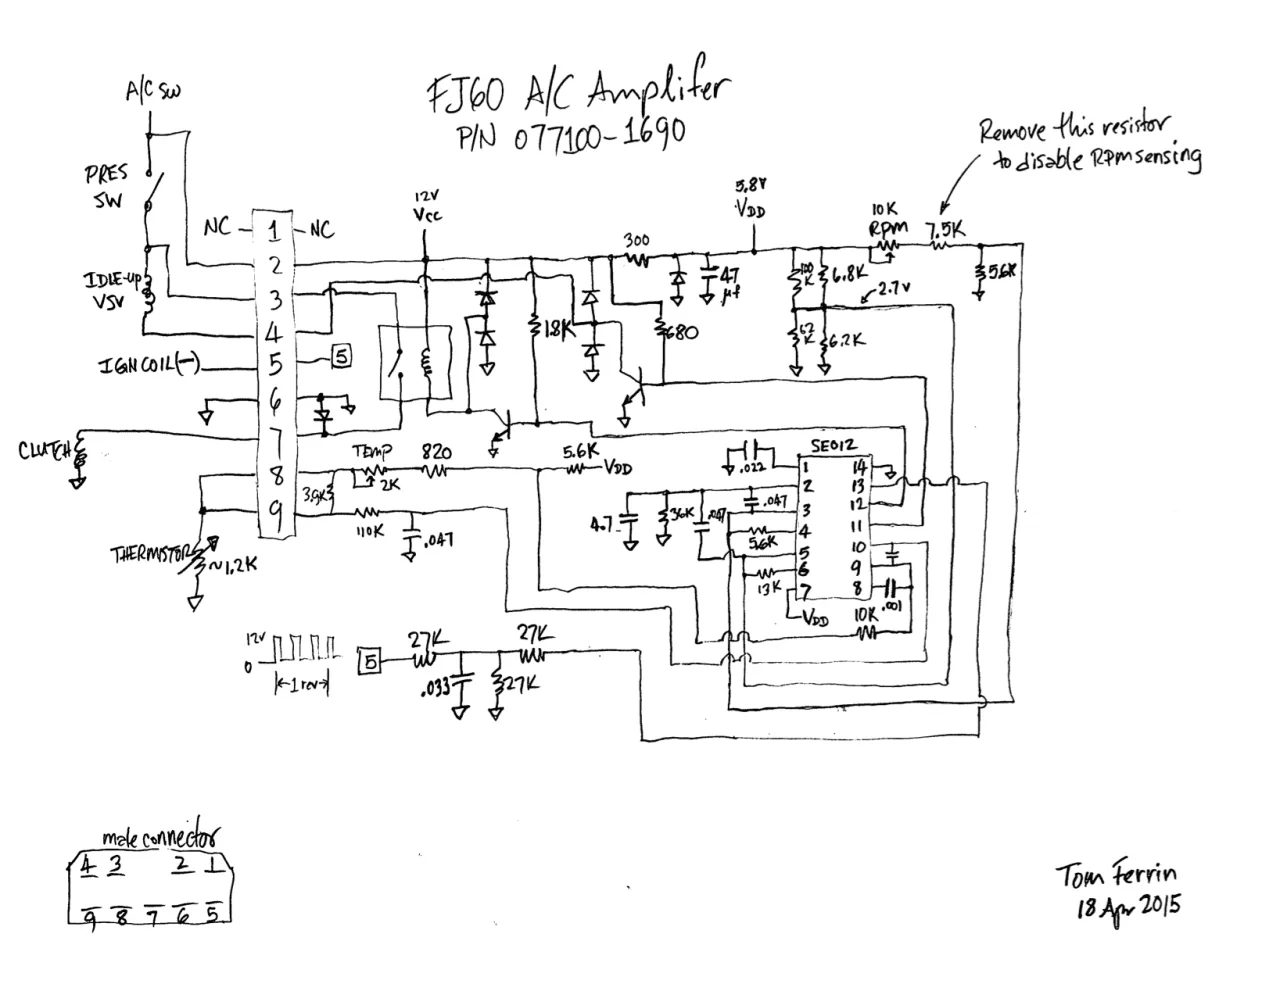 FJ60 A/C Amplifer
P/N 077100-1690
A/C SW
PRES
SW
NC
1
NC
2
3
4
5
6
7
8
9
IDLE-UP
VSV
IGN COIL (-)
5
CLUTCH
THERMISTOR
~1.2K
12V
Vcc
300
5.8V
VDD
47
µf
10K
RPM
7.5K
Remove this resistor
to disable RPM sensing
56K
100
K
6.8K
2.7V
62
K
6.2K
1.8K
680
TEMP
2K
820
5.6K
VDD
3.9K
110K
.047
SE012
.022
1
14
2
13
3
12
4
11
5
10
6
9
7
8
.047
4.7
36K
.047
56K
13K
VDD
.001
10K
12V
0
1 rev
5
27K
27K
.033
27K
male connector
4 3 2 1
9 8 7 6 5
Tom Ferrin
18 Apr 2015